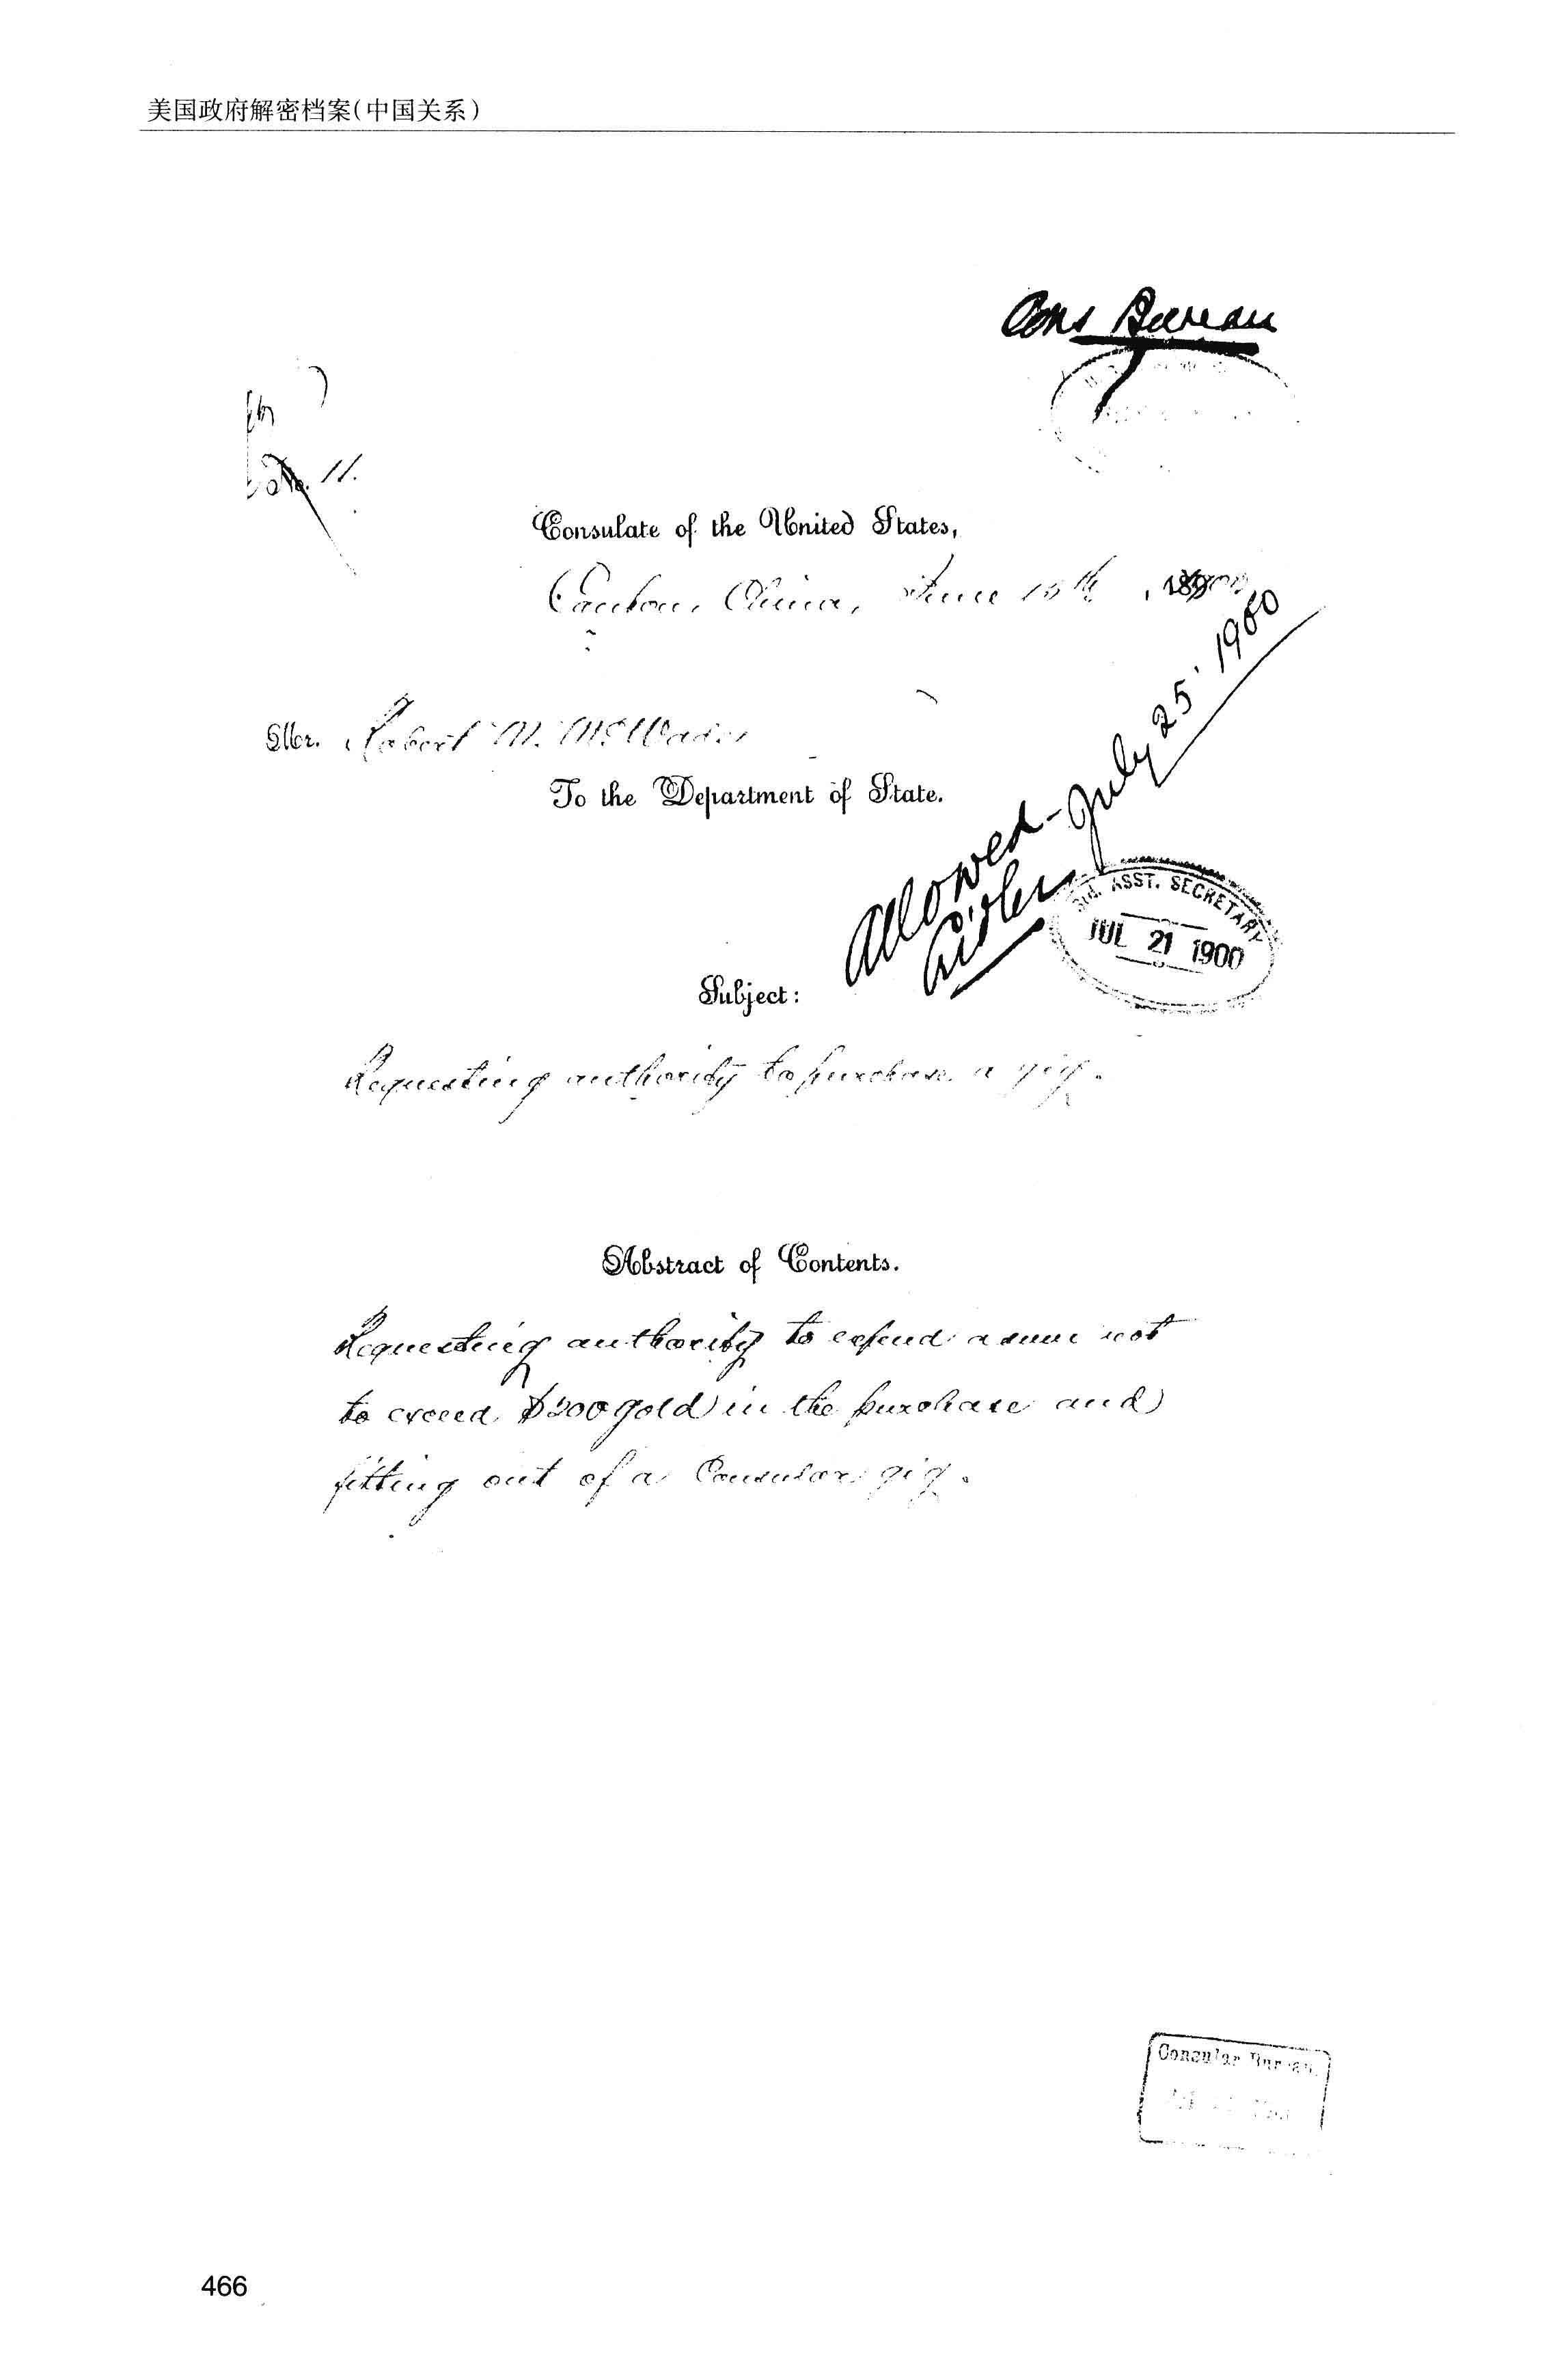 美国政府解密档案(中国关系)
Cons Bureau
No. 11.
Consulate of the United States,
Canton, China, June 15th, 1900
Mr. Robert M. McWade,
To the Department of State.
Allowed - July 25' 1900
3rd. ASST. SECRETARY
JUL 21 1900
Subject:
Requesting authority to purchase a gig.
Abstract of Contents.
Requesting authority to expend a sum not
to exceed $200 gold in the purchase and
fitting out of a Consular gig.
Consular Bureau
466